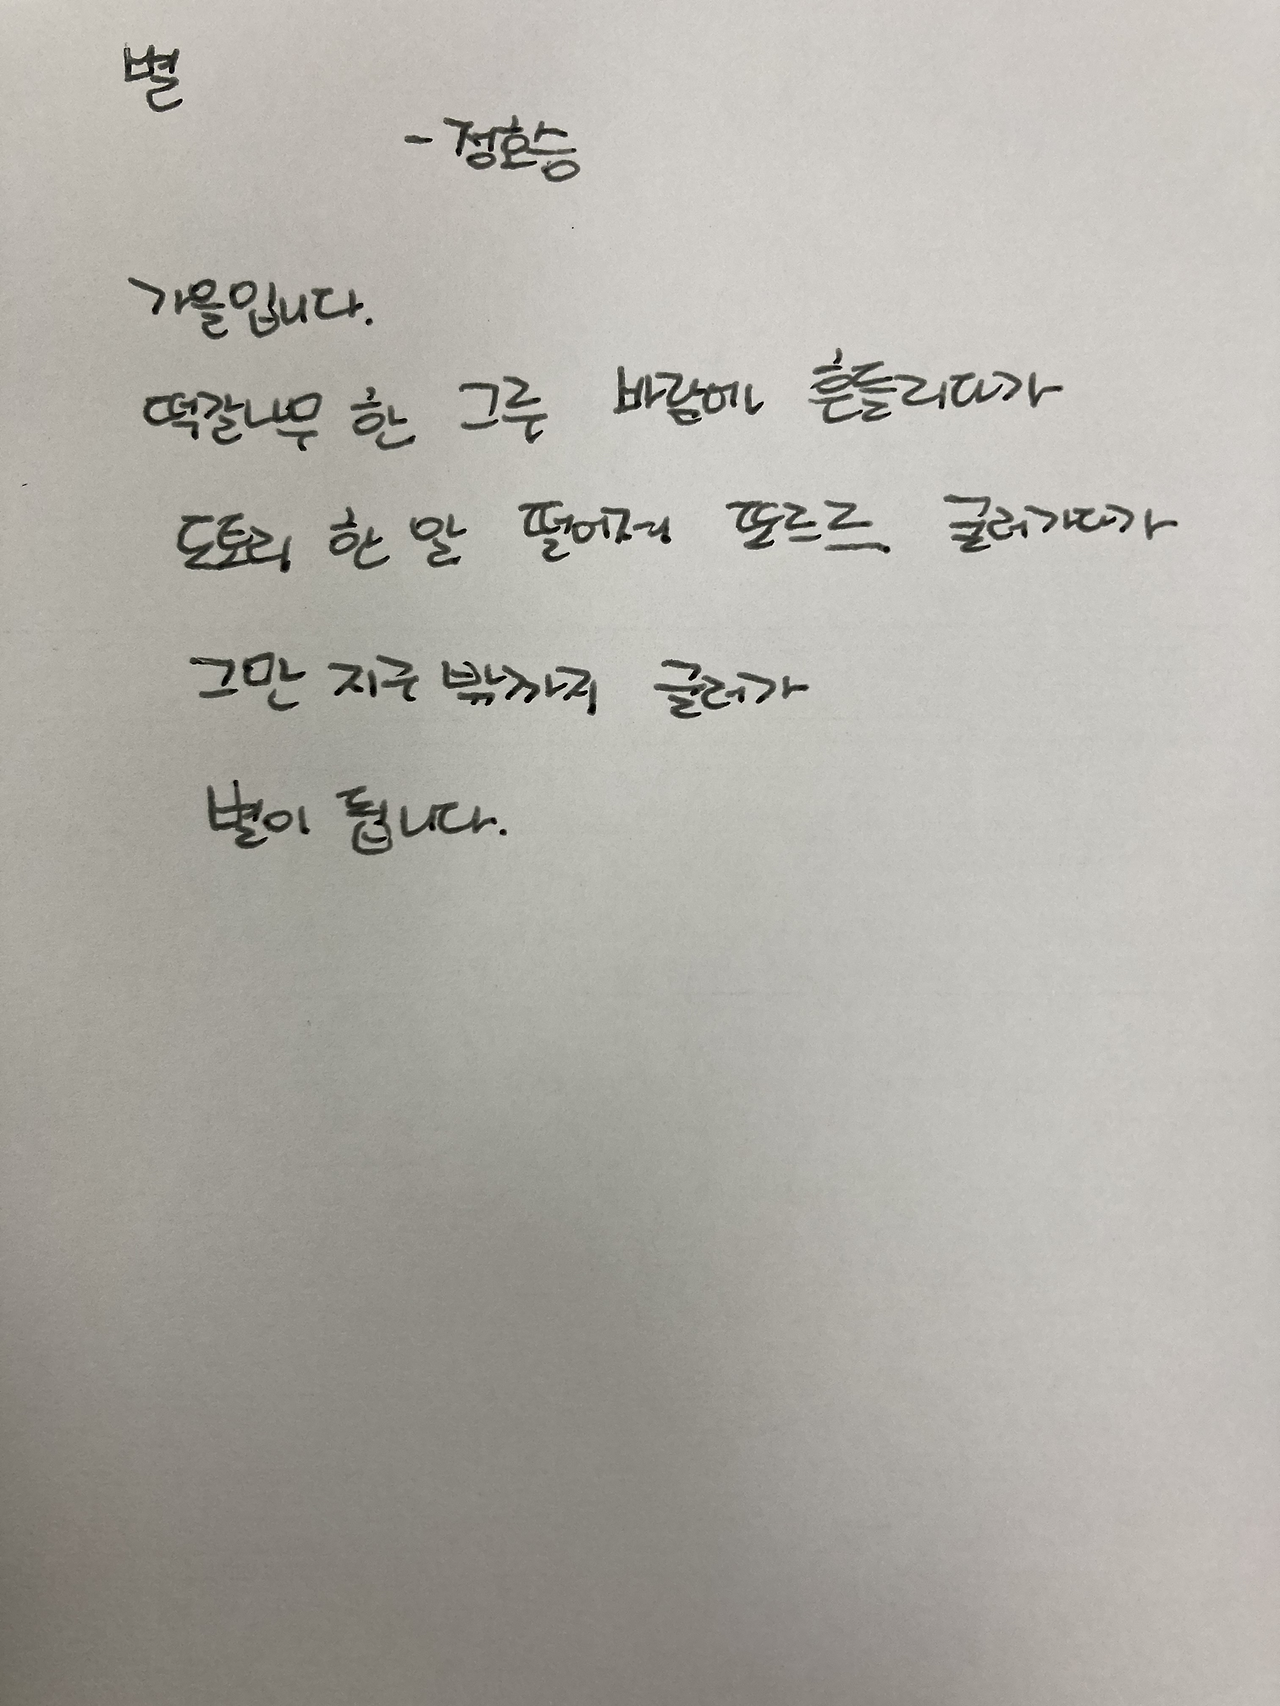 별
- 정호승
가을입니다.
떡갈나무 한 그루 바람에 흔들리다가
도토리 한 알 떨어져 또르르 굴러가다가
그만 지구 밖까지 굴러가
별이 됩니다.